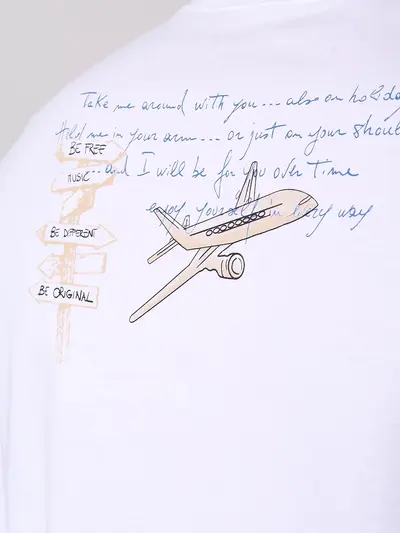 Take me around with you... also on holiday
Hold me in your arm... or just on your should
...and I will be for you over Time
enjoy yourself in every way
BE FREE
MUSIC
BE DIFFERENT
BE ORIGINAL